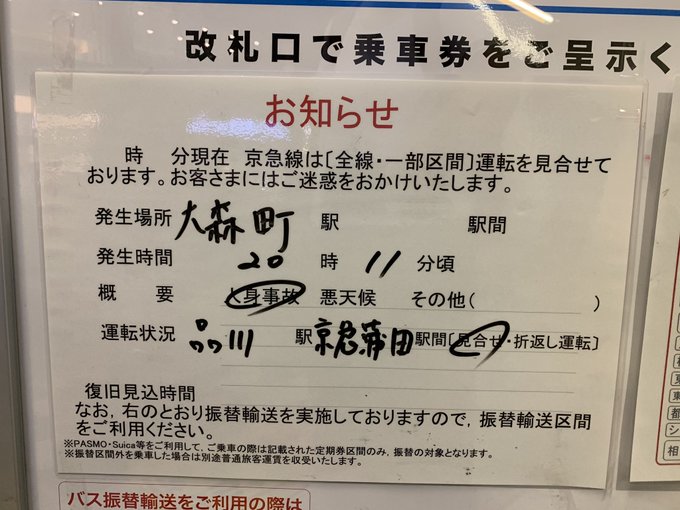 改札口で乗車券をご呈示く
お知らせ
時 分現在 京急線は〔全線・一部区間〕運転を見合せて
おります。お客さまにはご迷惑をおかけいたします。
発生場所 大森町 駅 駅間
発生時間 20 時 11 分頃
概 要 人身事故 悪天候 その他( )
運転状況 品川 駅 京急蒲田 駅間〔見合せ・折返し運転〕
復旧見込時間
なお,右のとおり振替輸送を実施しておりますので,振替輸送区間
をご利用ください。
※PASMO・Suica等をご利用して,ご乗車の際は記載された定期券区間のみ,振替の対象となります。
※振替区間外を乗車した場合は別途普通旅客運賃を収受いたします。
バス振替輸送をご利用の際は